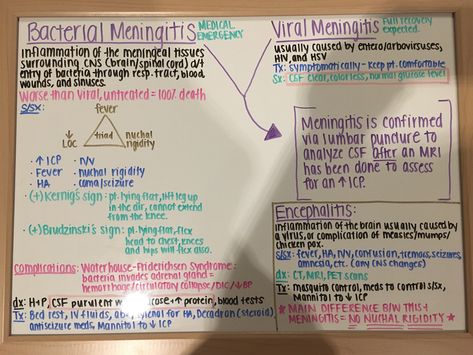 Bacterial Meningitis
MEDICAL
EMERGENCY
inflammation of the meningeal tissues
surrounding CNS (brain/spinal cord) d/t
entry of bacteria through resp. tract, blood,
wounds, and sinuses.
Worse than viral, untreated = 100% death
S/Sx:
fever
triad
↓ LOC
nuchal
rigidity
• ↑ ICP • N/V
• Fever • nuchal rigidity
• HA • coma/seizure
• (+) Kernig's sign: pt. lying flat, lift leg up
in the air, cannot extend
from the knee.
• (+) Brudzinski's sign: pt. lying flat, flex
head to chest, knees
and hips will flex also.
Complications: Waterhouse-Friderichsen Syndrome:
bacteria invades adrenal gland =
hemorrhage/circulatory collapse/DIC/↓BP
dx: H+P, CSF purulent ↑ protein, blood tests
Tx: Bed rest, IV fluids, for HA, Decadron (steroid)
antiseizure meds, Mannitol to ↓ ICP
Viral Meningitis
Full recovery
expected.
usually caused by entero/arboviruses,
HIV, and HSV
Tx: symptomatically - keep pt. comfortable
Sx: CSF clear, colorless, normal glucose level
Meningitis is confirmed
via lumbar puncture to
analyze CSF after an MRI
has been done to assess
for an ↑ ICP.
Encephalitis:
inflammation of the brain usually caused by
a virus, or complication of measles/mumps/
chicken pox.
S/Sx: fever, HA, N/V, confusion, tremors, seizures,
amnesia, etc. (any CNS changes)
dx: CT, MRI, PET scans
Tx: mosquito control, meds to control s/sx,
Mannitol to ↓ ICP
* MAIN DIFFERENCE B/W THIS +
MENINGITIS = NO NUCHAL RIGIDITY *